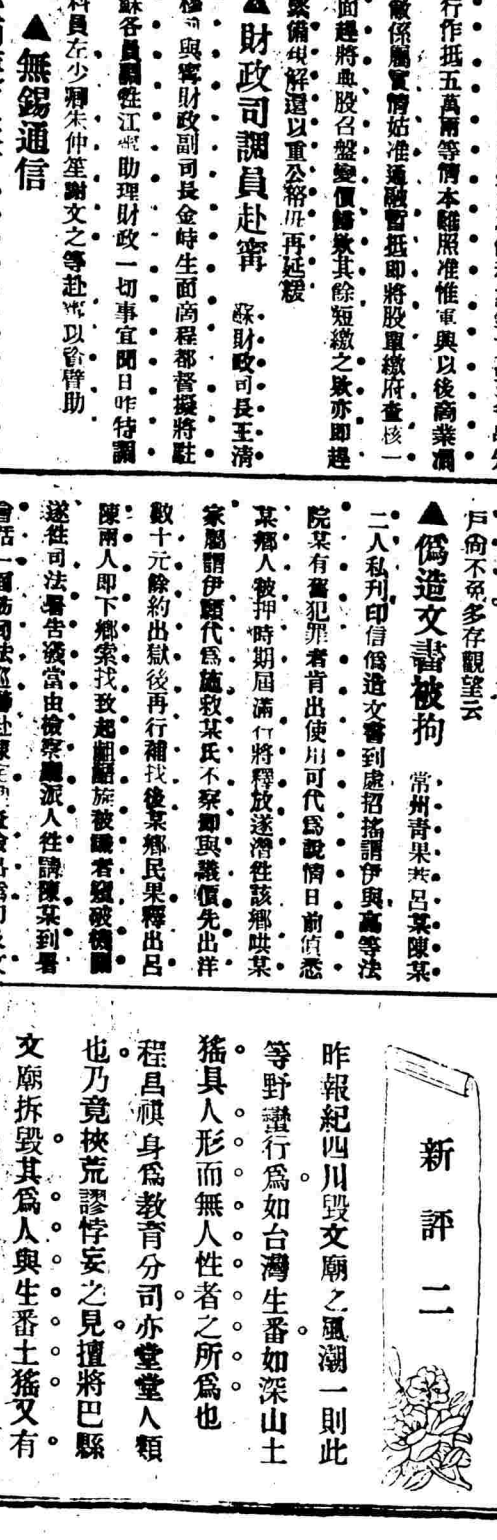 行作抵五萬兩等情本難照准惟軍興以後商業凋
敝係屬實情姑准通融暫抵即將股單繳府查核一
面趕將典股召盤變價歸欵其餘短繳之欵亦即趕
緊備現解還以重公務毋再延緩
▲財政司調員赴甯 蘇財政司長王清
穆與甯財政副司長金時生面商程都督擬將駐
蘇各員調往江甯助理財政一切事宜聞日昨特調
科員左少卿朱仲笙謝文之等赴甯以資臂助
▲無錫通信
戶尙不免多存觀望云
▲僞造文書被拘 常州靑果巷呂某陳某
二人私刊印信僞造文書到處招搖謂伊與高等法
院某有舊犯罪者肯出使用可代爲說情日前偵悉
某鄉人被押時期屆滿行將釋放遂潛往該鄉哄某
家屬謂伊願代爲施救某氏不察卽與議價先出洋
數十元餘約出獄後再行補找後某鄉民果釋出呂
陳兩人即下鄉索找致起齟齬旋被識者窺破機關
遂往司法署吿發當由檢察廳派人往請陳某到署
新評二
昨報紀四川毀文廟之風潮一則此
等野蠻行爲如台灣生番如深山土
猺具人形而無人性者之所爲也
程昌祺身爲敎育分司亦堂堂人類
也乃竟挾荒謬悖妄之見擅將巴縣
文廟拆毀其爲人與生番土猺又有